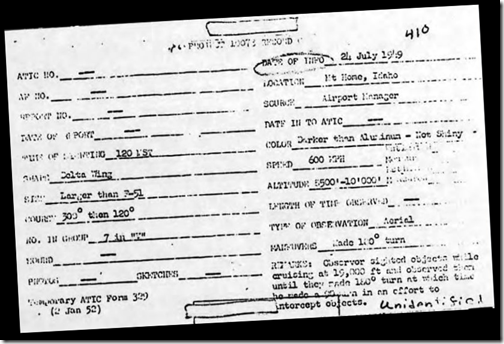 PROJECT 10073 RECORD
410
ATIC NO. —
AF NO. —
REPORT NO. —
DATE OF REPORT —
TIME OF SIGHTING 120 MST
SHAPE Delta Wing
SIZE Larger than F-51
COURSE 300° then 120°
NO. IN GROUP 7 in "V"
SOUND —
PHOTOS — SKETCHES —
Temporary ATIC Form 329
(2 Jan 52)
DATE OF INFO 24 July 1949
LOCATION Mt Home, Idaho
SOURCE Airport Manager
DATE IN TO ATIC —
COLOR Darker than Aluminum - Not Shiny
SPEED 600 MPH
ALTITUDE 8500'-10'000'
LENGTH OF TIME OBSERVED —
TYPE OF OBSERVATION Aerial
MANEUVERS Made 180° turn
REMARKS: Observer sighted objects while
cruising at 19,000 ft and observed them
until they made 180° turn at which time
he made a turn in an effort to
intercept objects. Unidentified